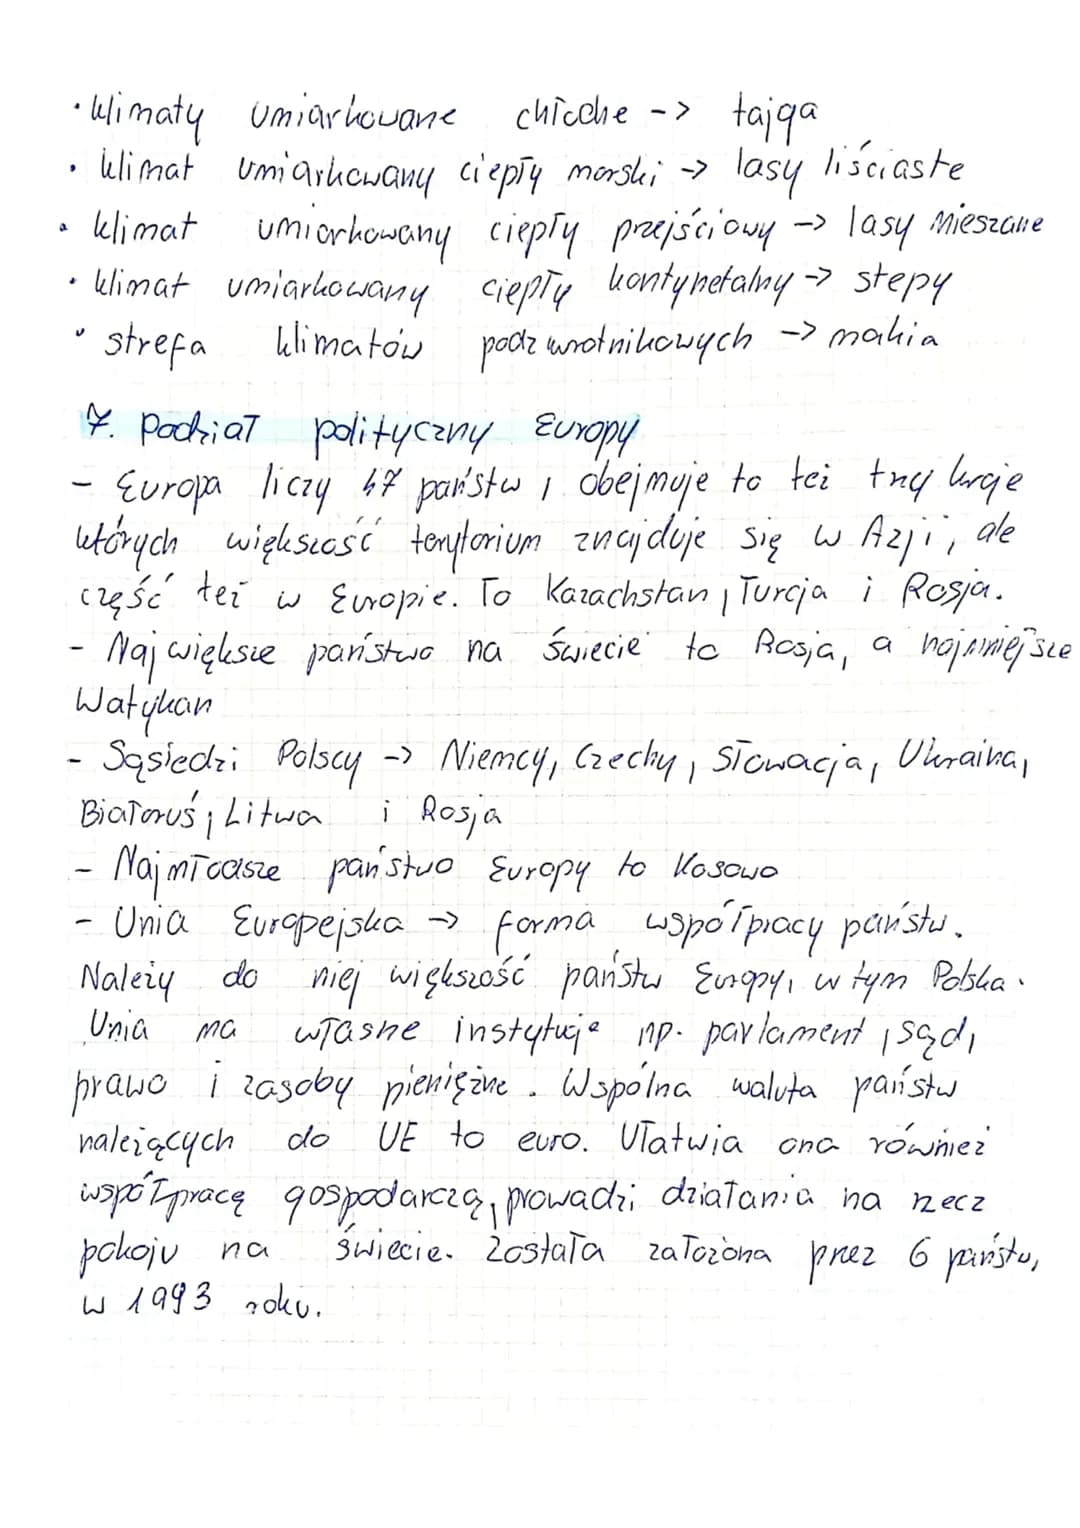 • klimaty umiarkowane chłodne -> tajga
• klimat umiarkowany ciepły morski -> lasy liściaste
• klimat umiarkowany ciepły przejściowy -> lasy mieszane
• klimat umiarkowany ciepły kontynetalny -> stepy
• strefa klimatów podzwrotnikowych -> makia
7. Podział polityczny Europy
- Europa liczy 47 państw, obejmuje to też trzy kraje
których większość terytorium znajduje się w Azji, ale
część też w Europie. To Kazachstan, Turcja i Rosja.
- Największe państwo na świecie to Rosja, a najmniejsze
Watykan
- Sąsiedzi Polscy -> Niemcy, Czechy, Słowacja, Ukraina,
Białoruś, Litwa i Rosja
- Najmłodsze państwo Europy to Kosowo
- Unia Europejska -> forma współpracy państw.
Należy do niej większość państw Europy, w tym Polska.
Unia ma własne instytucje np. parlament, sąd,
prawo i zasoby pieniężne. Wspólna waluta państw
należących do UE to euro. Ułatwia ona również
współpracę gospodarczą, prowadzi działania na rzecz
pokoju na świecie. Została założona przez 6 państw,
w 1993 roku.